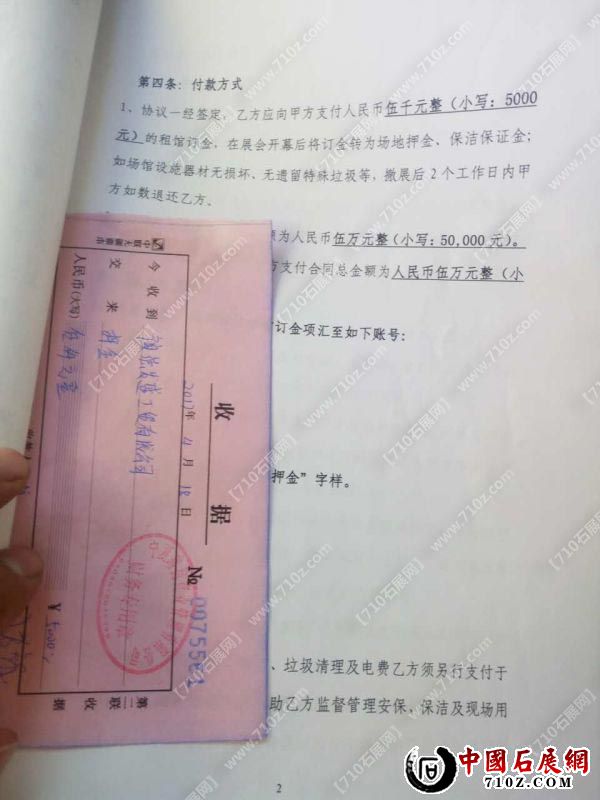 第四条：付款方式
1、协议一经签定，乙方应向甲方支付人民币伍千元整（小写：5000
元）的租馆订金，在展会开幕后将订金转为场地押金、保洁保证金；
如场馆设施器材无损坏、无遗留特殊垃圾等，撤展后2个工作日内甲
方如数退还乙方。
额为人民币伍万元整（小写：50,000元）。
方支付合同总金额为人民币伍万元整（小
订金项汇至如下账号：
押金”字样。
、垃圾清理及电费乙方须另行支付于
助乙方监督管理安保，保洁及现场用
2
收据
2017年11月18日
No 0075561
今收到
工贸有限公司
交来
押金
人民币(大写)
伍仟元整
￥5000
财务专用章
第二联
收据
中国石展網
710Z.COM
【710石展网】
www.710z.com